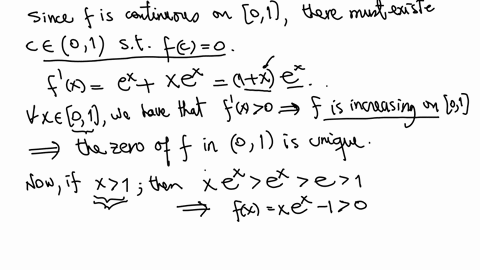 Since f is continuous on [0,1], there must existe
c ∈ (0,1) s.t. f(c)=0.
f'(x) = e^x + xe^x = (1+x) e^x.
∀x∈[0,1], we have that f'(x)>0 ⟹ f is increasing on [0,1]
⟹ the zero of f in (0,1) is unique.
Now, if x>1; then x e^x > e^x > e > 1
⟹ f(x) = x e^x - 1 > 0